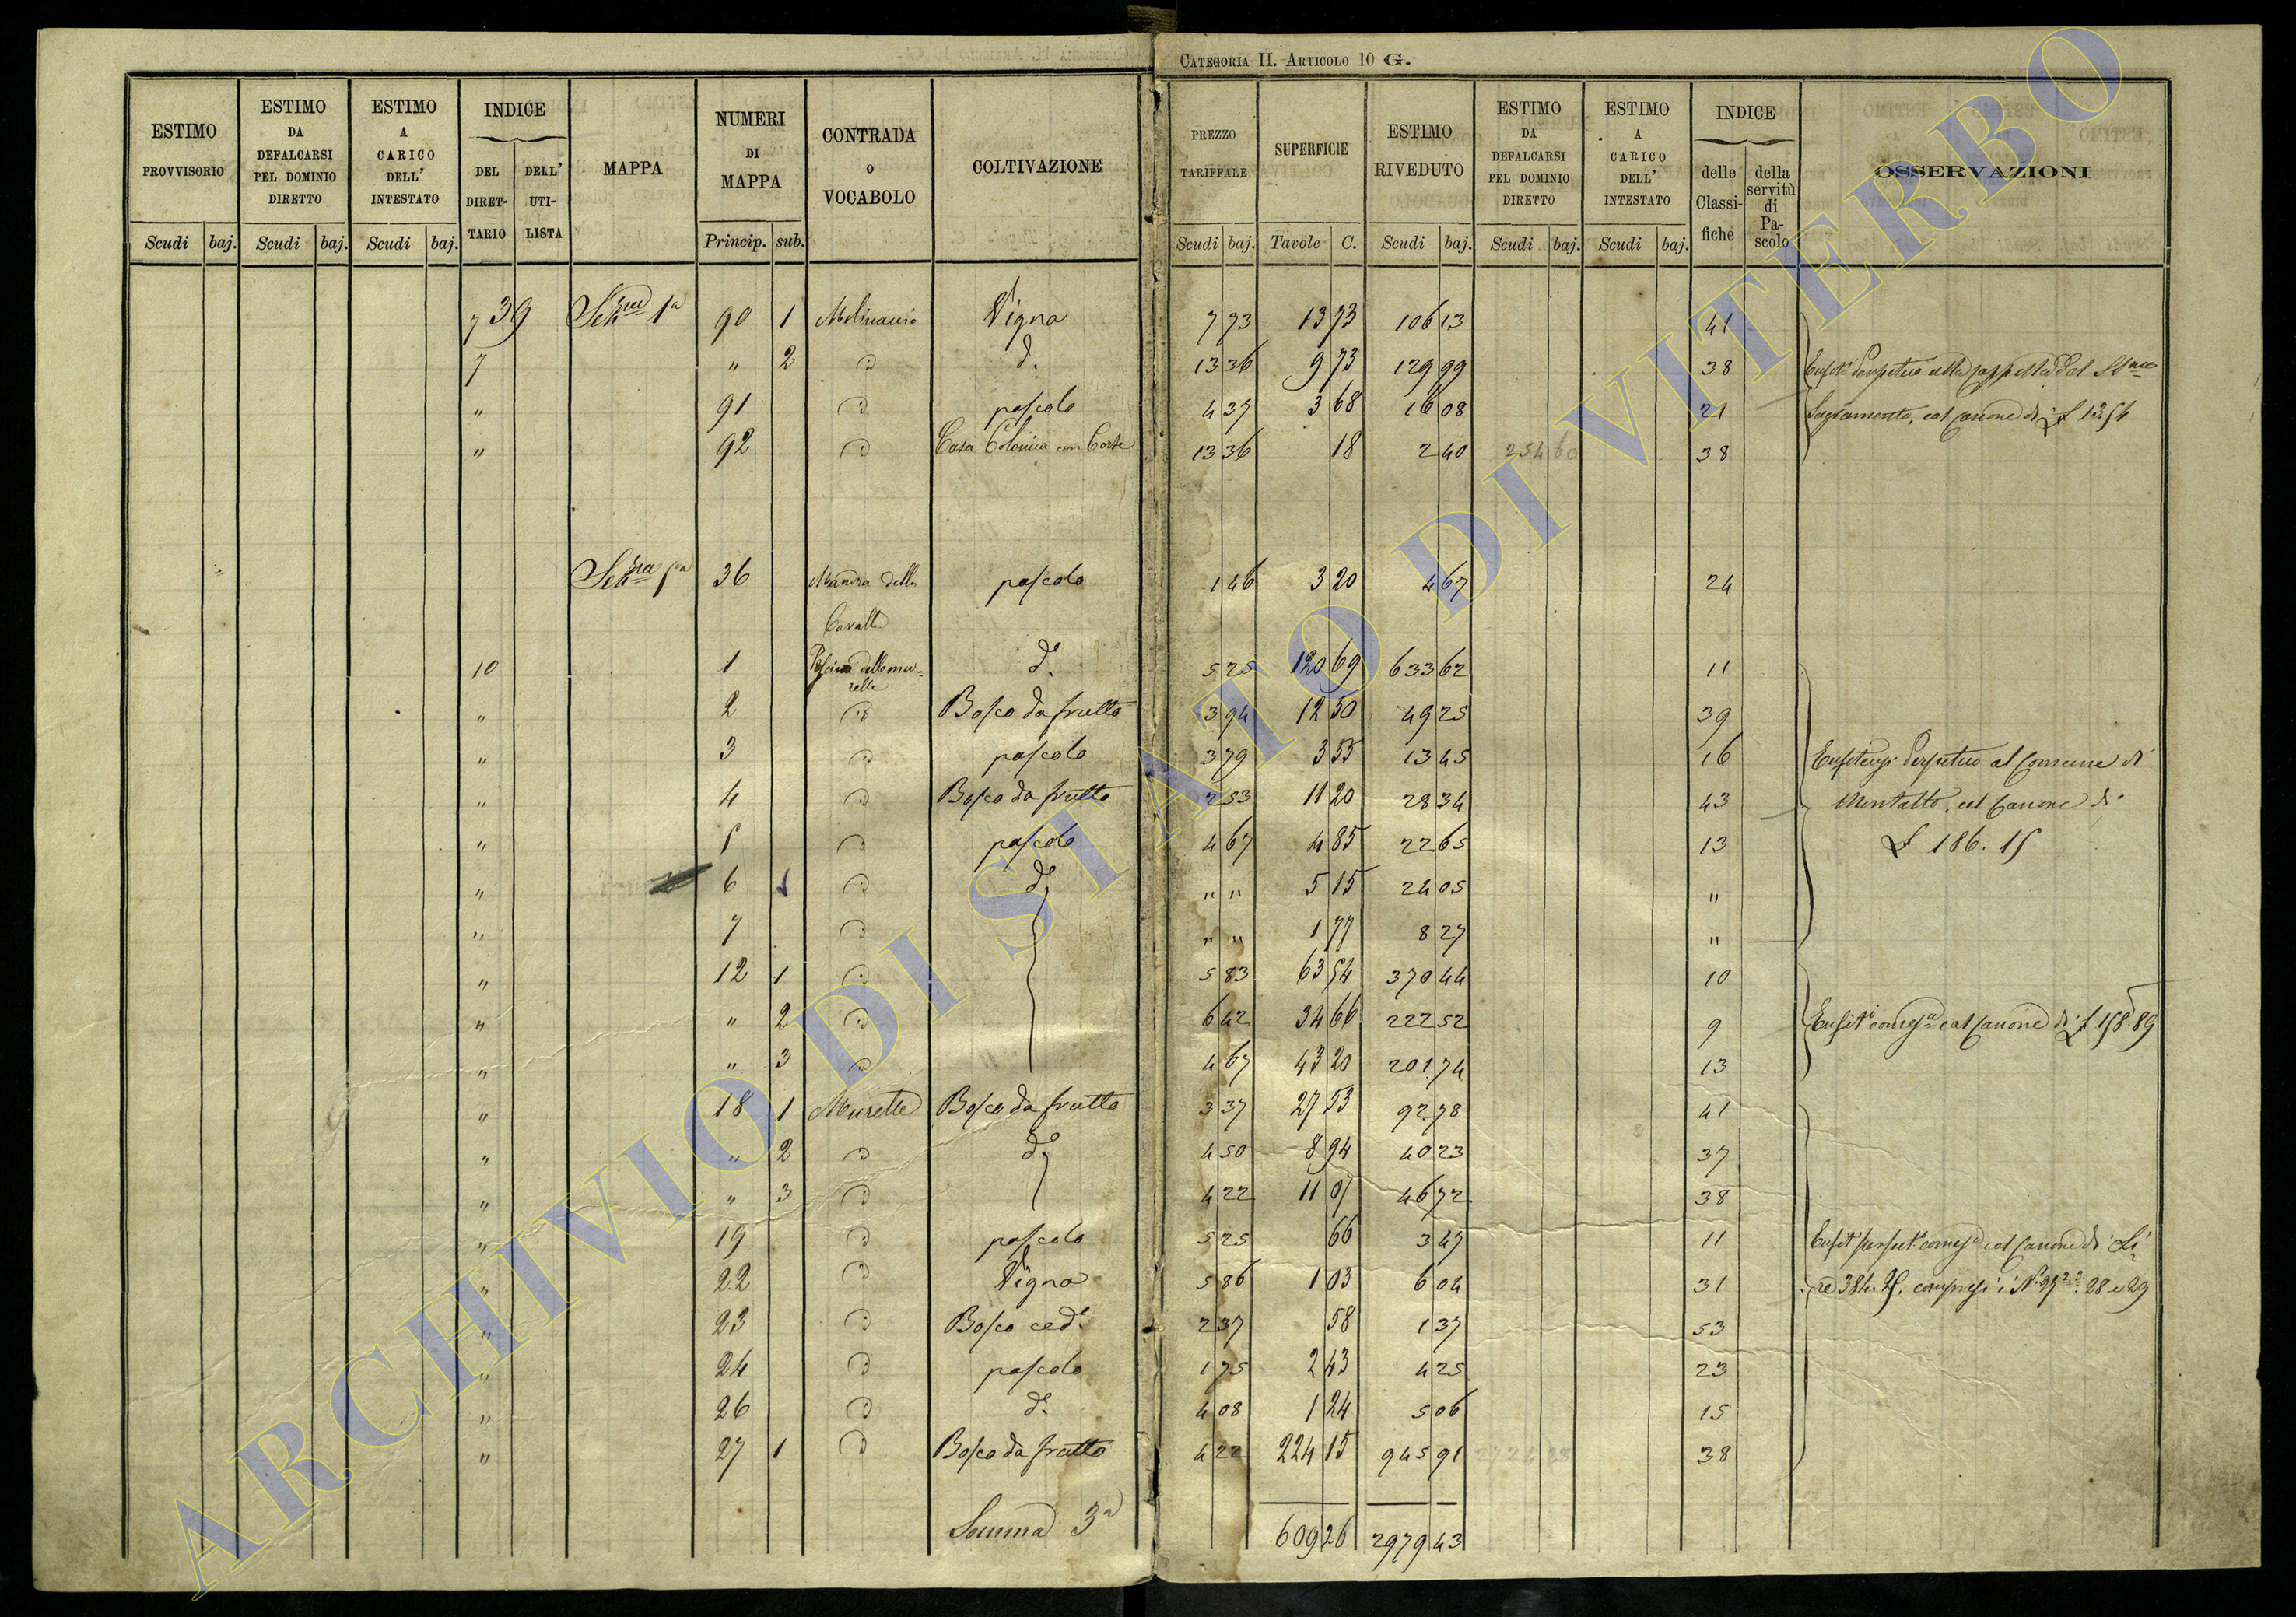 CATEGORIA II. ARTICOLO 10 G.
ESTIMO PROVVISORIO Scudi baj.
ESTIMO DA DEFALCARSI PEL DOMINIO DIRETTO Scudi baj.
ESTIMO A CARICO DELL' INTESTATO Scudi baj.
INDICE DEL DIRETTARIO DELL' UTILISTA
MAPPA
NUMERI DI MAPPA Princip. sub.
CONTRADA o VOCABOLO
COLTIVAZIONE
PREZZO TARIFFALE Scudi baj.
SUPERFICIE Tavole C.
ESTIMO RIVEDUTO Scudi baj.
ESTIMO DA DEFALCARSI PEL DOMINIO DIRETTO Scudi baj.
ESTIMO A CARICO DELL' INTESTATO Scudi baj.
INDICE delle Classifiche della servitù di Pascolo
OSSERVAZIONI
7 39 1a 90 1 Vigna 7 73 13 73 106 13 41
7 " 2 d. 13 36 9 73 129 99 38
" 91 pascolo 4 37 3 68 16 08 21 Sagramento, col Canone di £ 13.54
" 92 Casa Colonica con Corte 13 36 18 2 40 254 60 38
36 Mandra della pascolo 1 46 3 20 4 67 24
Cavalla
10 1 d.o 5 25 120 69 633 62 11
" 2 Bosco da frutto 3 94 12 50 49 25 39
" 3 pascolo 3 79 3 55 13 45 16 Perpetuo al Comune di
" 4 Bosco da frutto 2 53 11 20 28 34 43 Montalto, col Canone di
" 5 pascolo 4 67 4 85 22 65 13 £ 186.15
" 6 d.o " " 5 15 24 05 "
" 7 " " 1 77 8 27 "
" 12 1 5 83 63 54 370 44 10
" " 2 6 42 34 66 222 52 9 col Canone di £ 158.89
" " 3 4 67 43 20 201 74 13
" 18 1 Murelle Bosco da frutto 3 37 27 53 92 78 41
" " 2 d.o 4 50 8 94 40 23 37
" " 3 4 22 11 07 46 72 38
" 19 pascolo 5 25 66 3 47 11 col Canone di Li=
" 22 Vigna 5 86 1 03 6 04 31 re 384.25. compresi i 28 e 29
" 23 Bosco ced.o 2 37 58 1 37 53
" 24 pascolo 1 75 2 43 4 25 23
" 26 d.o 4 08 1 24 5 06 15
" 27 1 Bosco da frutto 4 22 224 15 945 91 38
Somma 3a 609 26 2979 43
ARCHIVIO DI STATO DI VITERBO